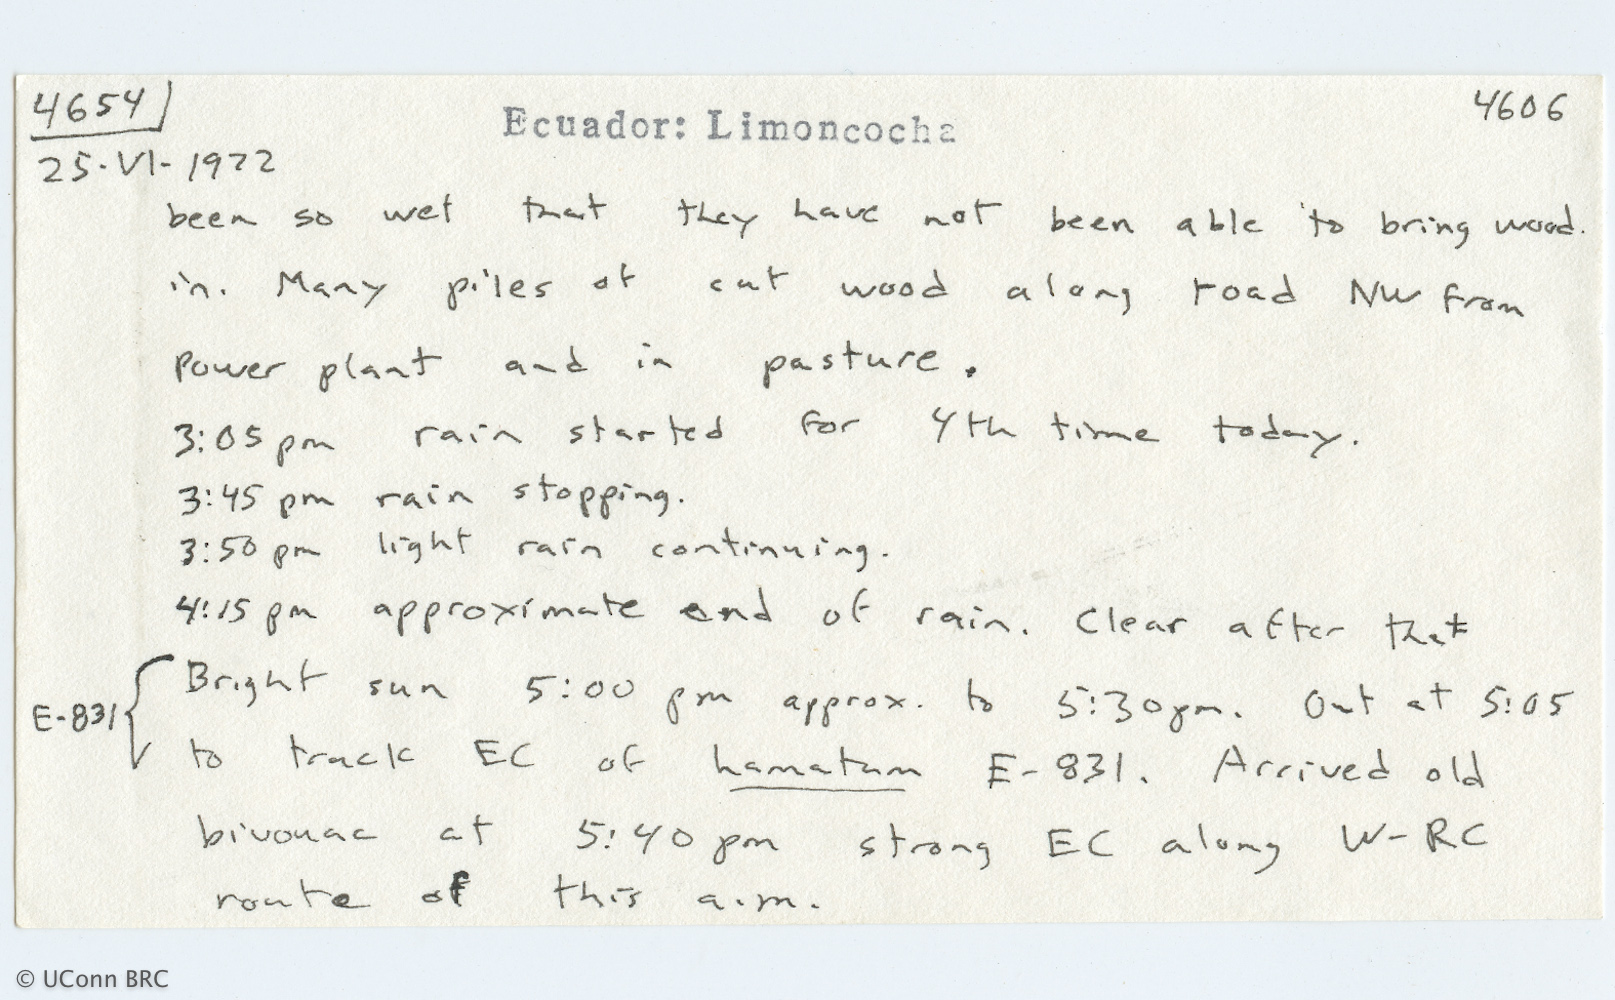 4654
Ecuador: Limoncocha
4606
25-VI-1972
been so wet that they have not been able to bring wood.
in. Many piles of cut wood along road NW from
Power plant and in pasture.
3:05 pm rain started for 4th time today.
3:45 pm rain stopping.
3:50 pm light rain continuing.
4:15 pm approximate end of rain. Clear after that
Bright sun 5:00 pm approx. to 5:30 pm. Out at 5:05
E-831
to track EC of hamatum E-831. Arrived old
bivouac at 5:40 pm strong EC along W-RC
route of this a.m.
© UConn BRC